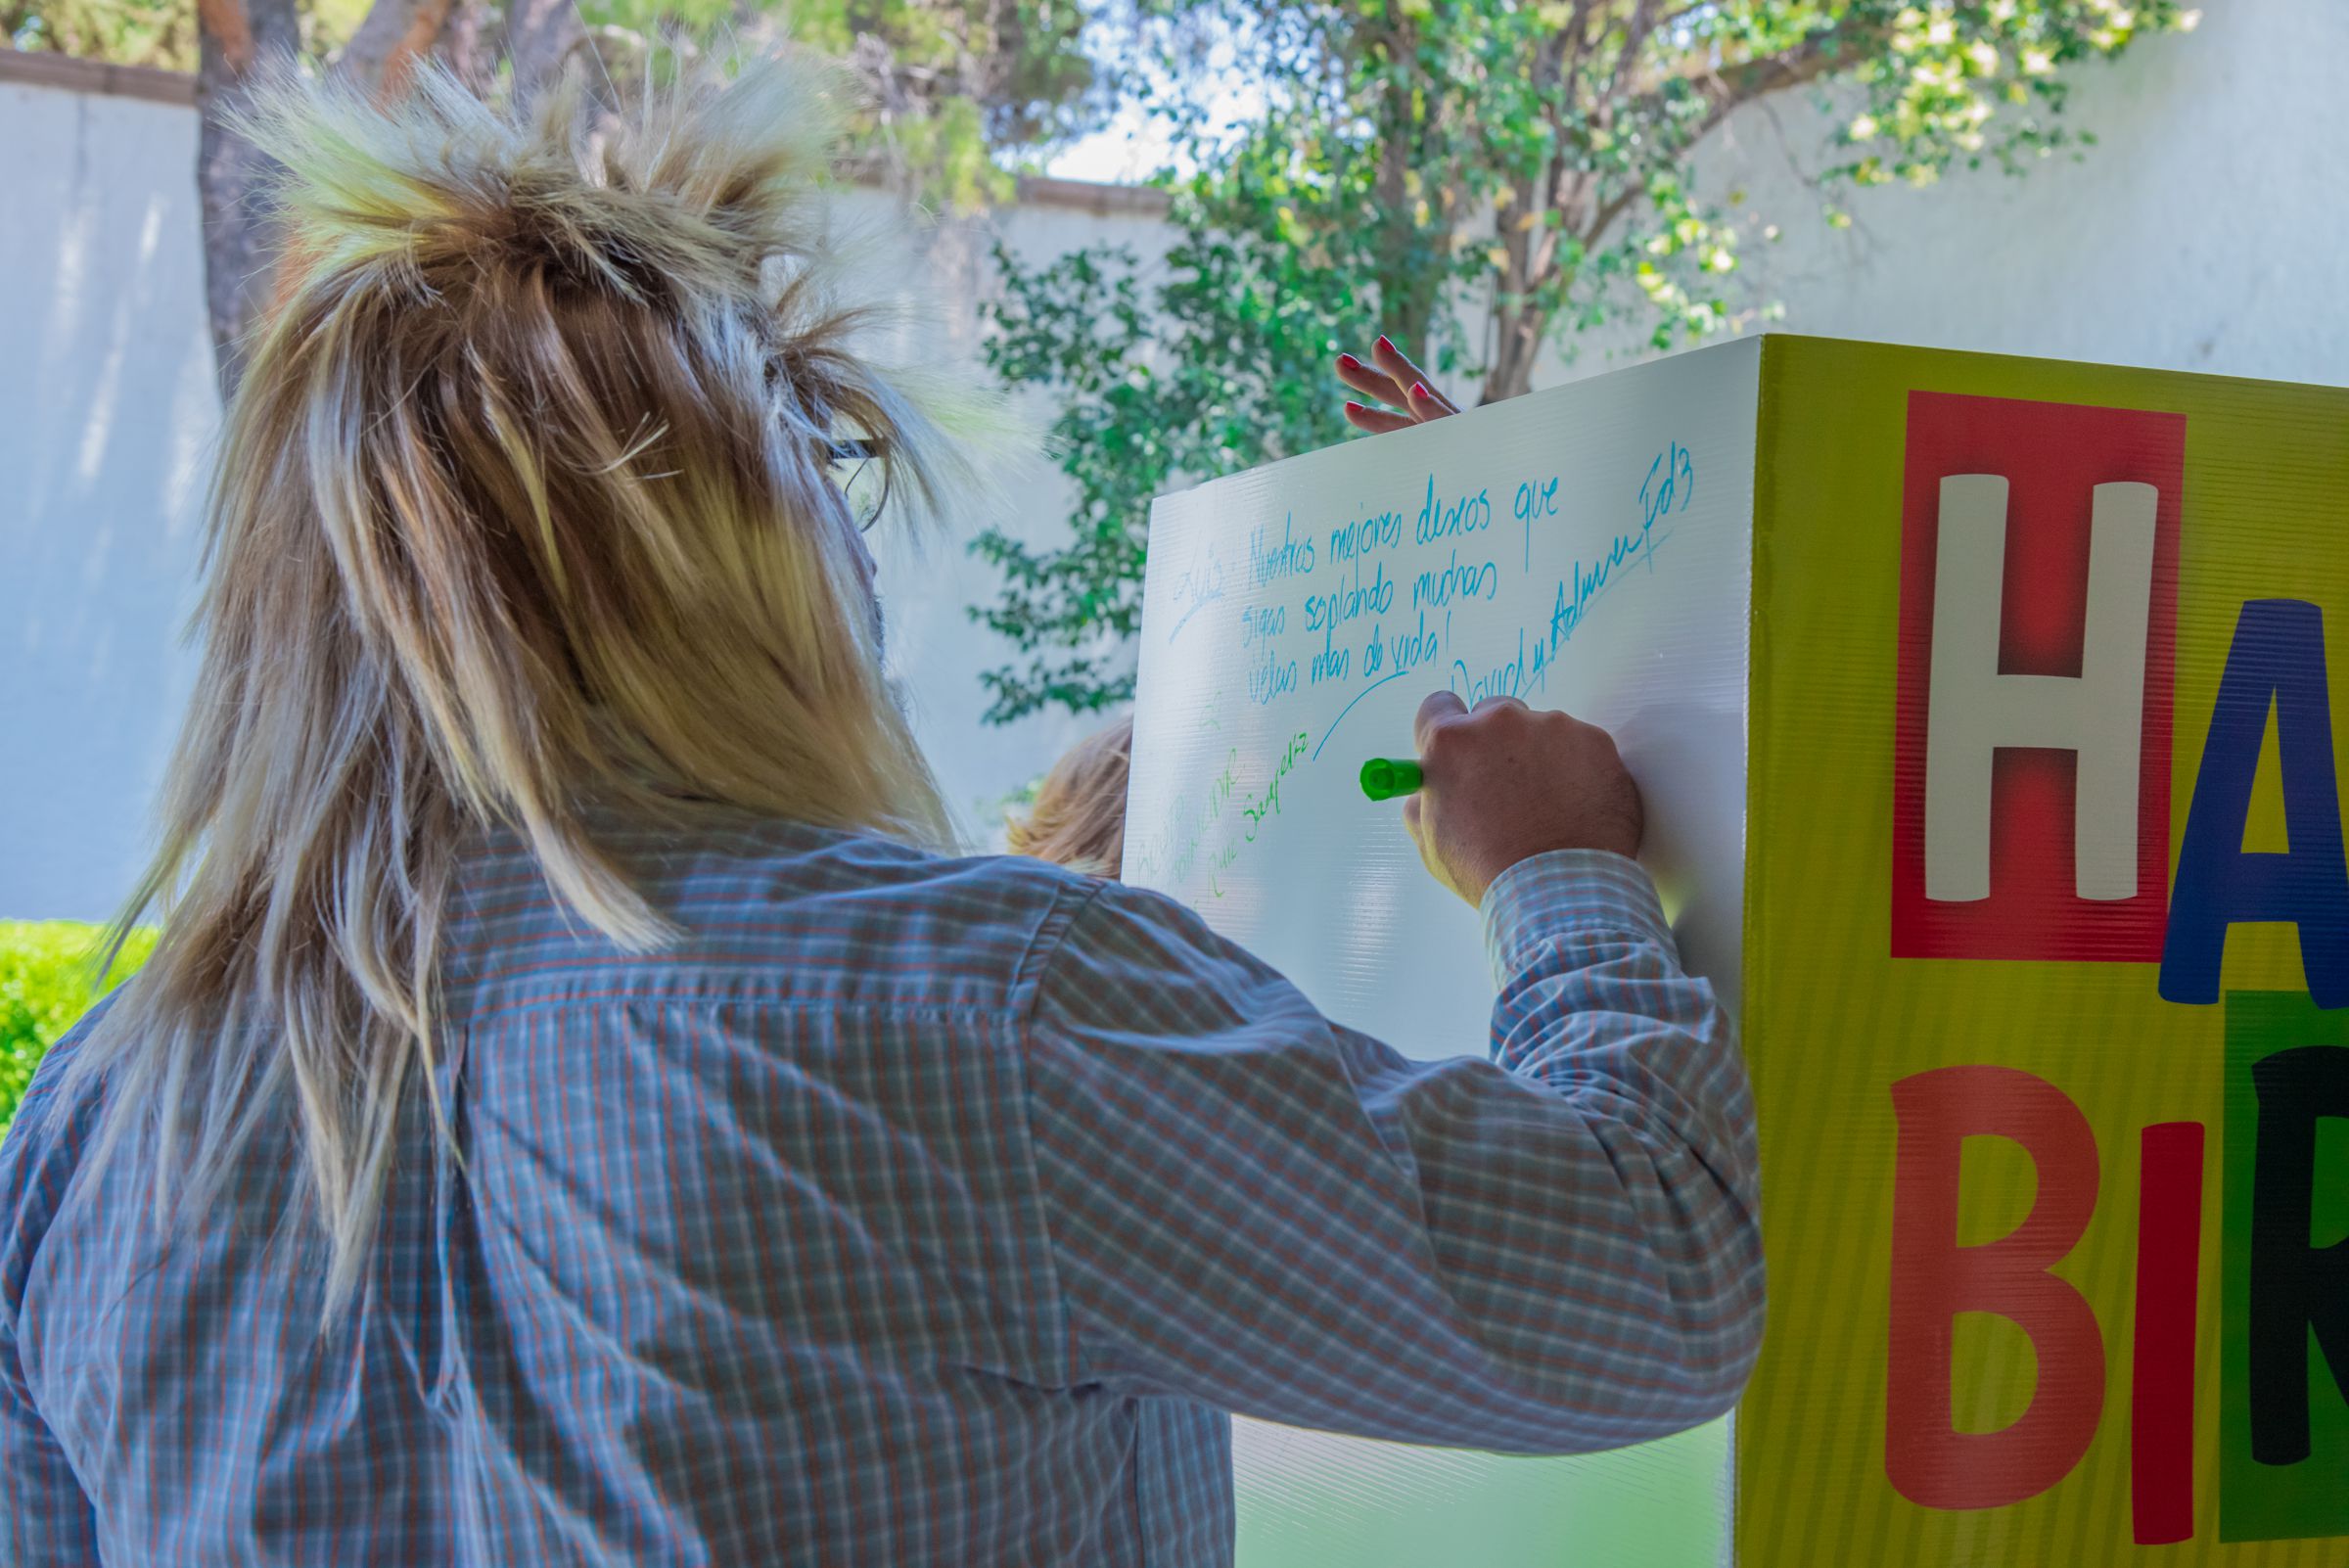 Luis: Nuestros mejores deseos que
sigas soplando muchas
velas mas de vida!
David y
Ruiz
HA
BIR